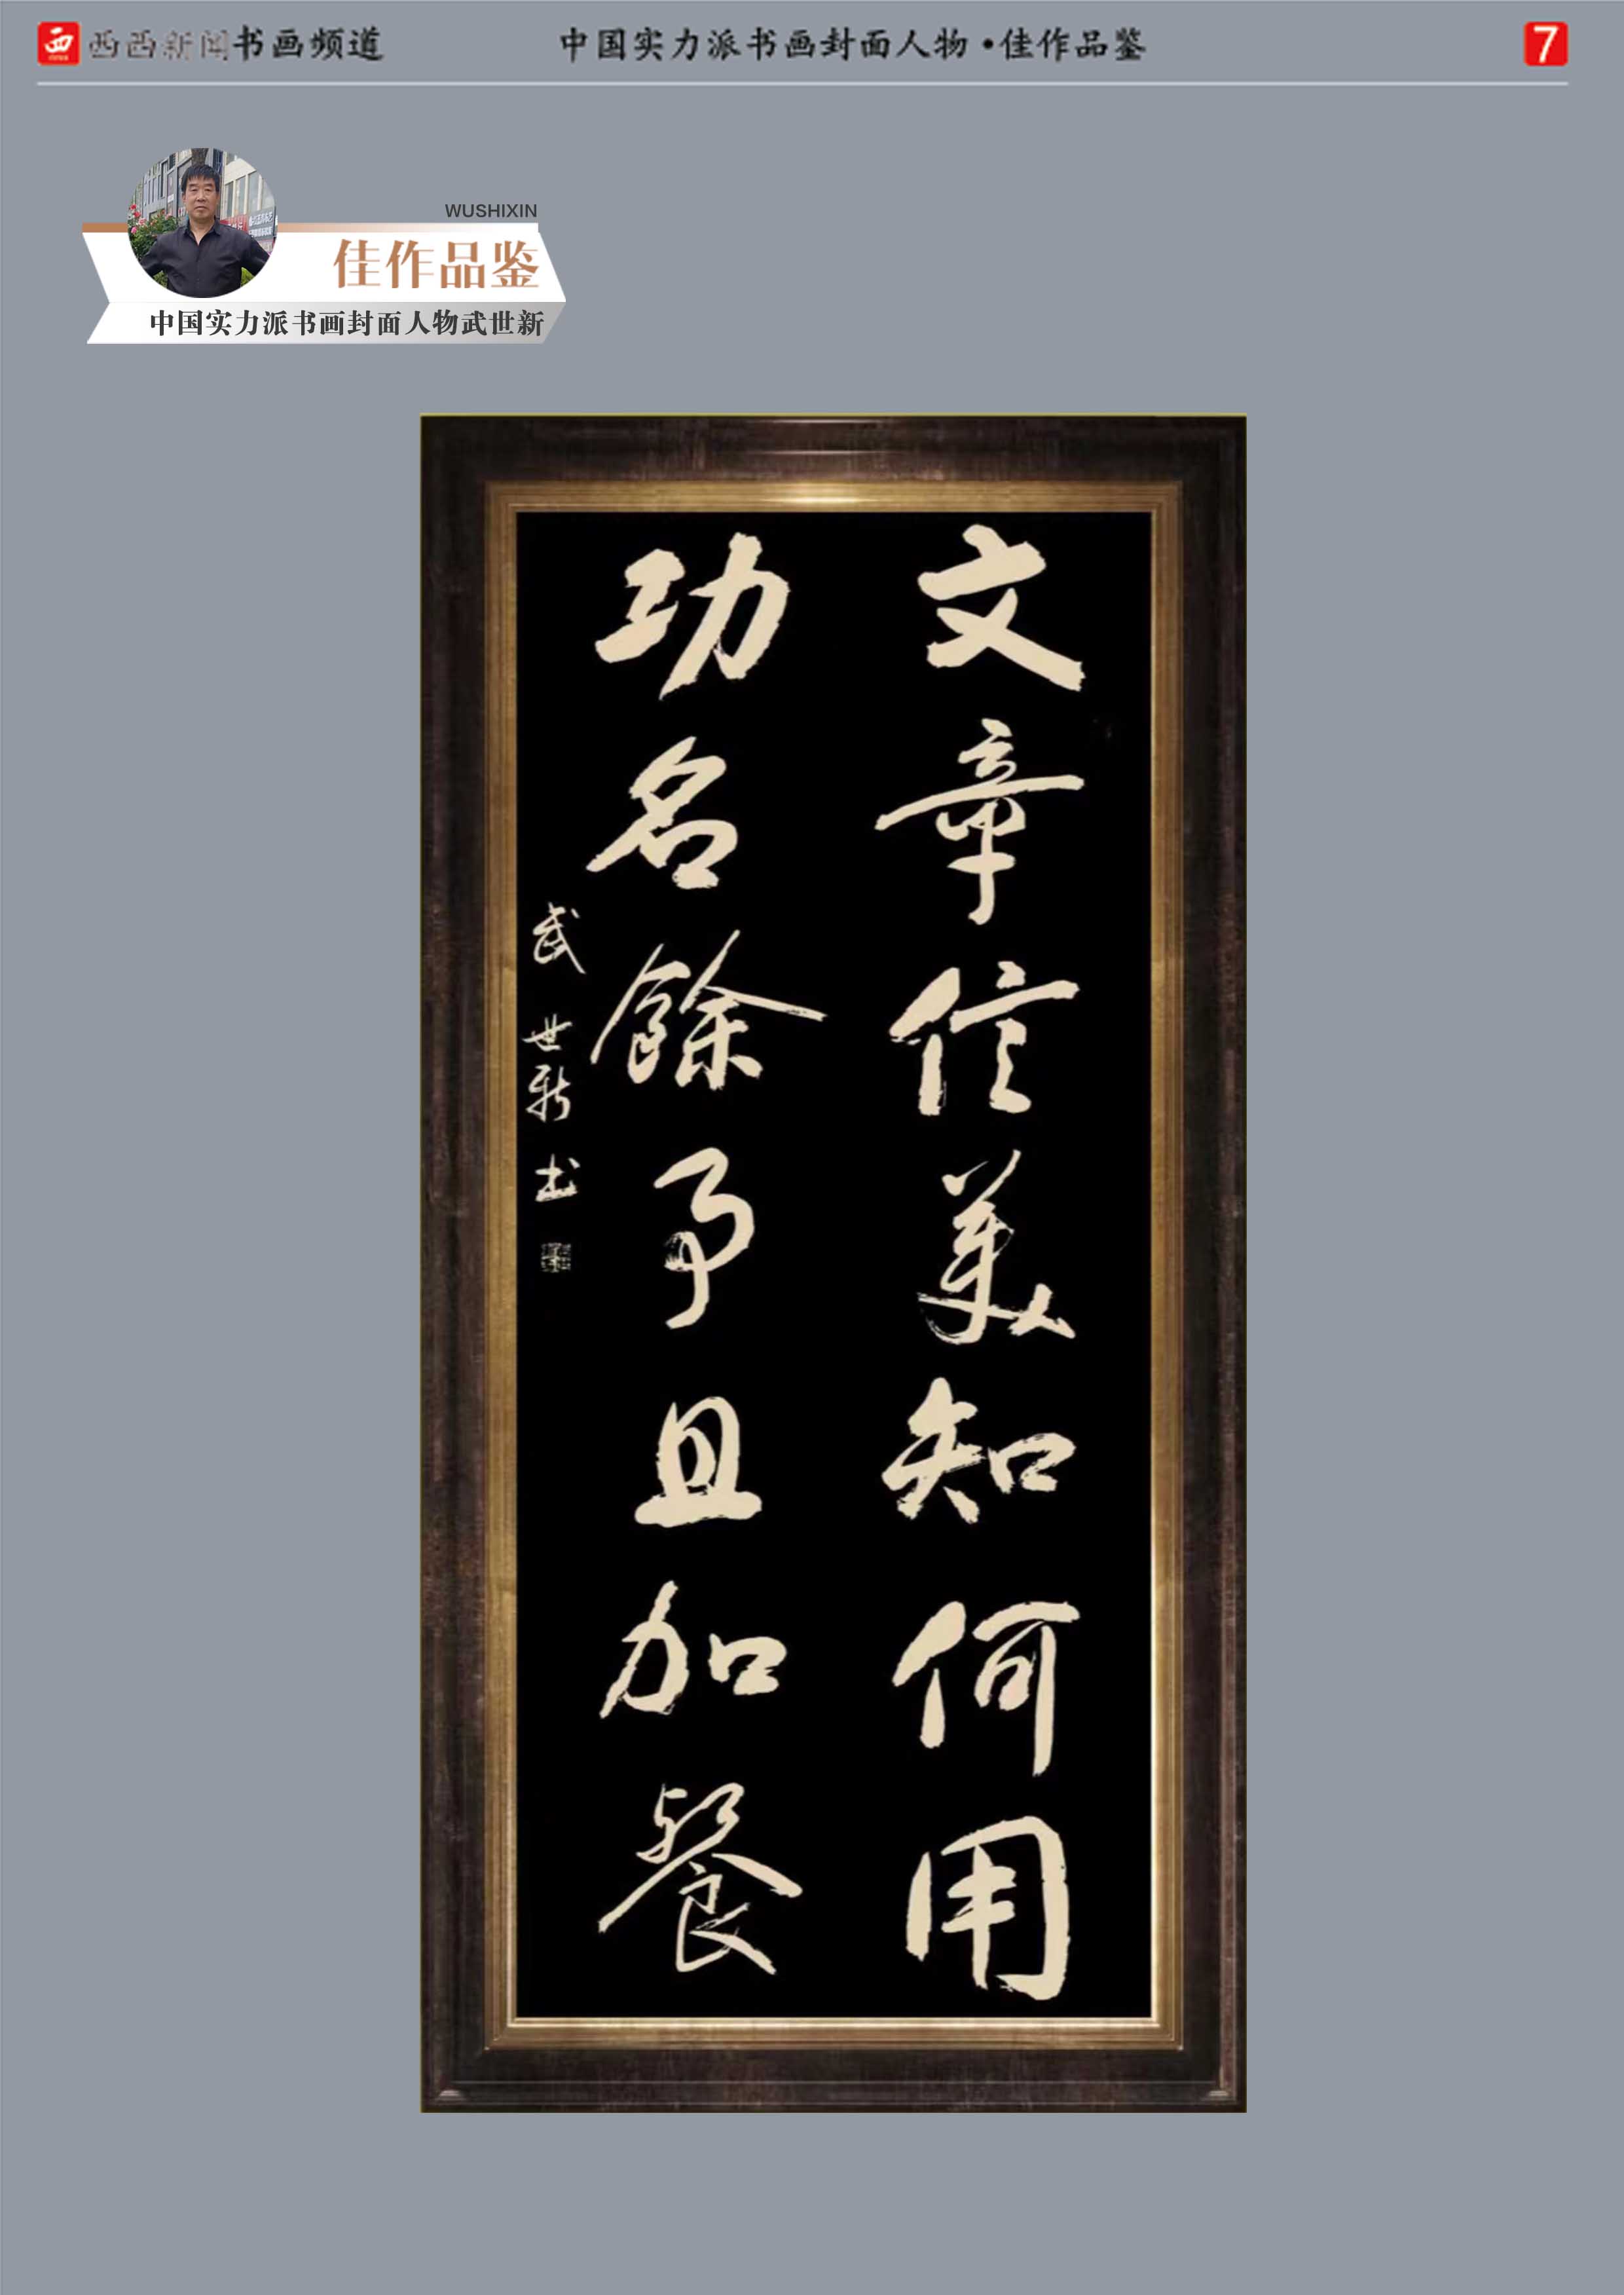 西 西西新闻书画频道
中国实力派书画封面人物·佳作品鉴
7
WUSHIXIN
佳作品鉴
中国实力派书画封面人物武世新
文章信美知何用
功名餘事且加餐
武世新书